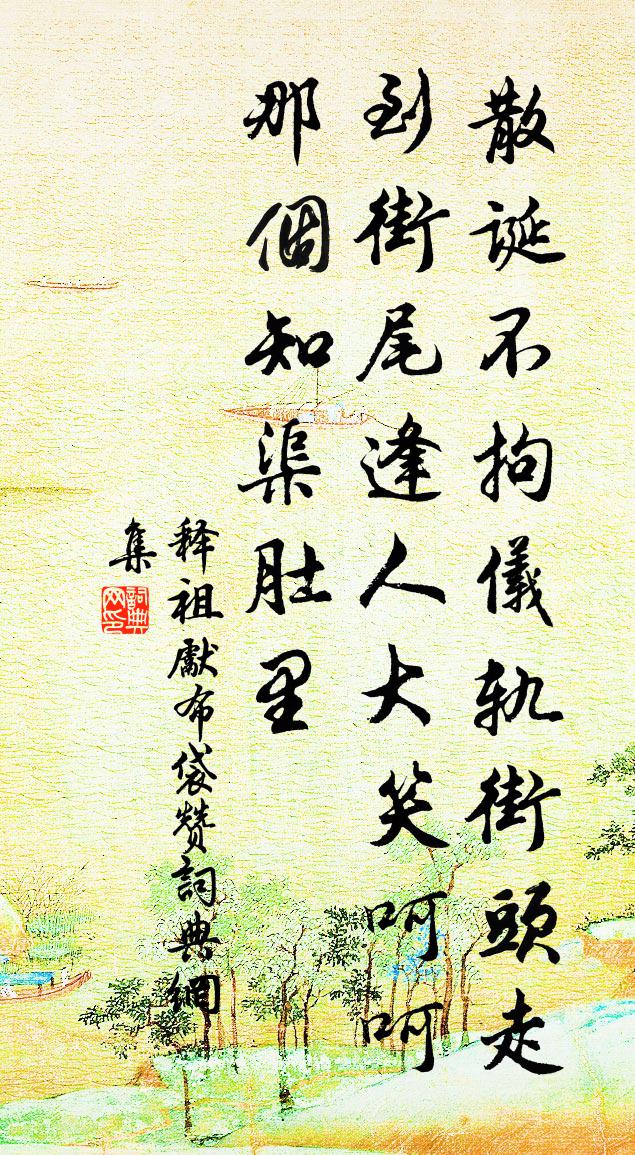 散誕不拘儀軌街頭走
到街尾逢人大笑呵呵
那個知渠肚里
释祖獻布袋赞詞典網
集
詞典
网印